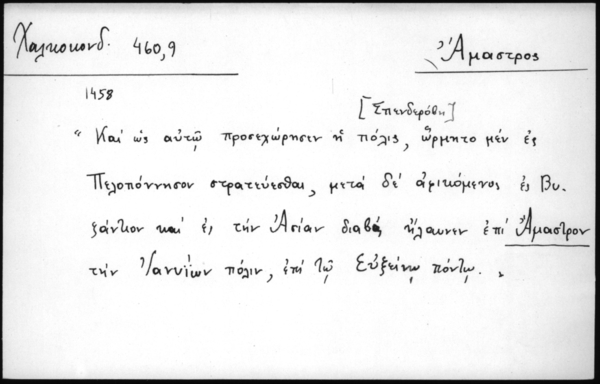 Χαλκοκονδ. 460,9
Ἄμαστρος
1458
[Σπενδερόβη]
"Καί ὡς αὐτῷ προσεχώρησεν ἡ πόλις, ὥρμητο μέν ἐς
Πελοπόννησον στρατεύεσθαι, μετά δέ ἀφικόμενος ἐς Βυ-
ζάντιον καί ἐς τήν Ἀσίαν διαβάς ἤλαυνεν ἐπί Ἄμαστρον
τήν Ἰανυΐων πόλιν, ἐπί τῷ Εὐξείνῳ πόντῳ.,